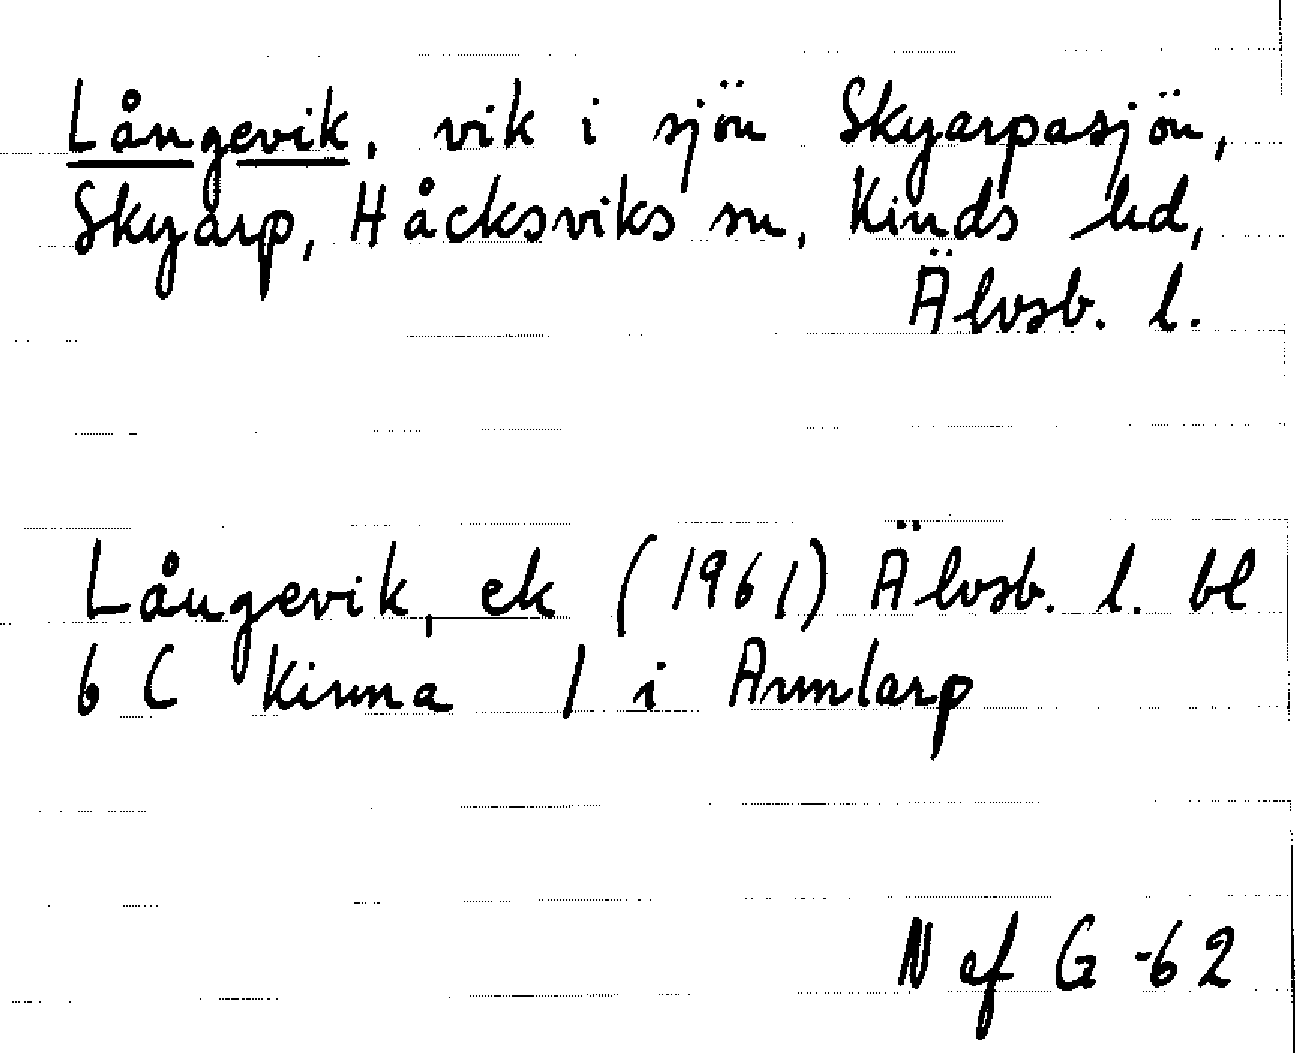 Långevik, vik i sjön Skyarpasjön,
Skyarp, Håcksviks sn, Kinds hd,
Älvsb. l.
Långevik, ek (1961) Älvsb. l. bl
6 C Kinna / i Arnnlarp
N ef G -62